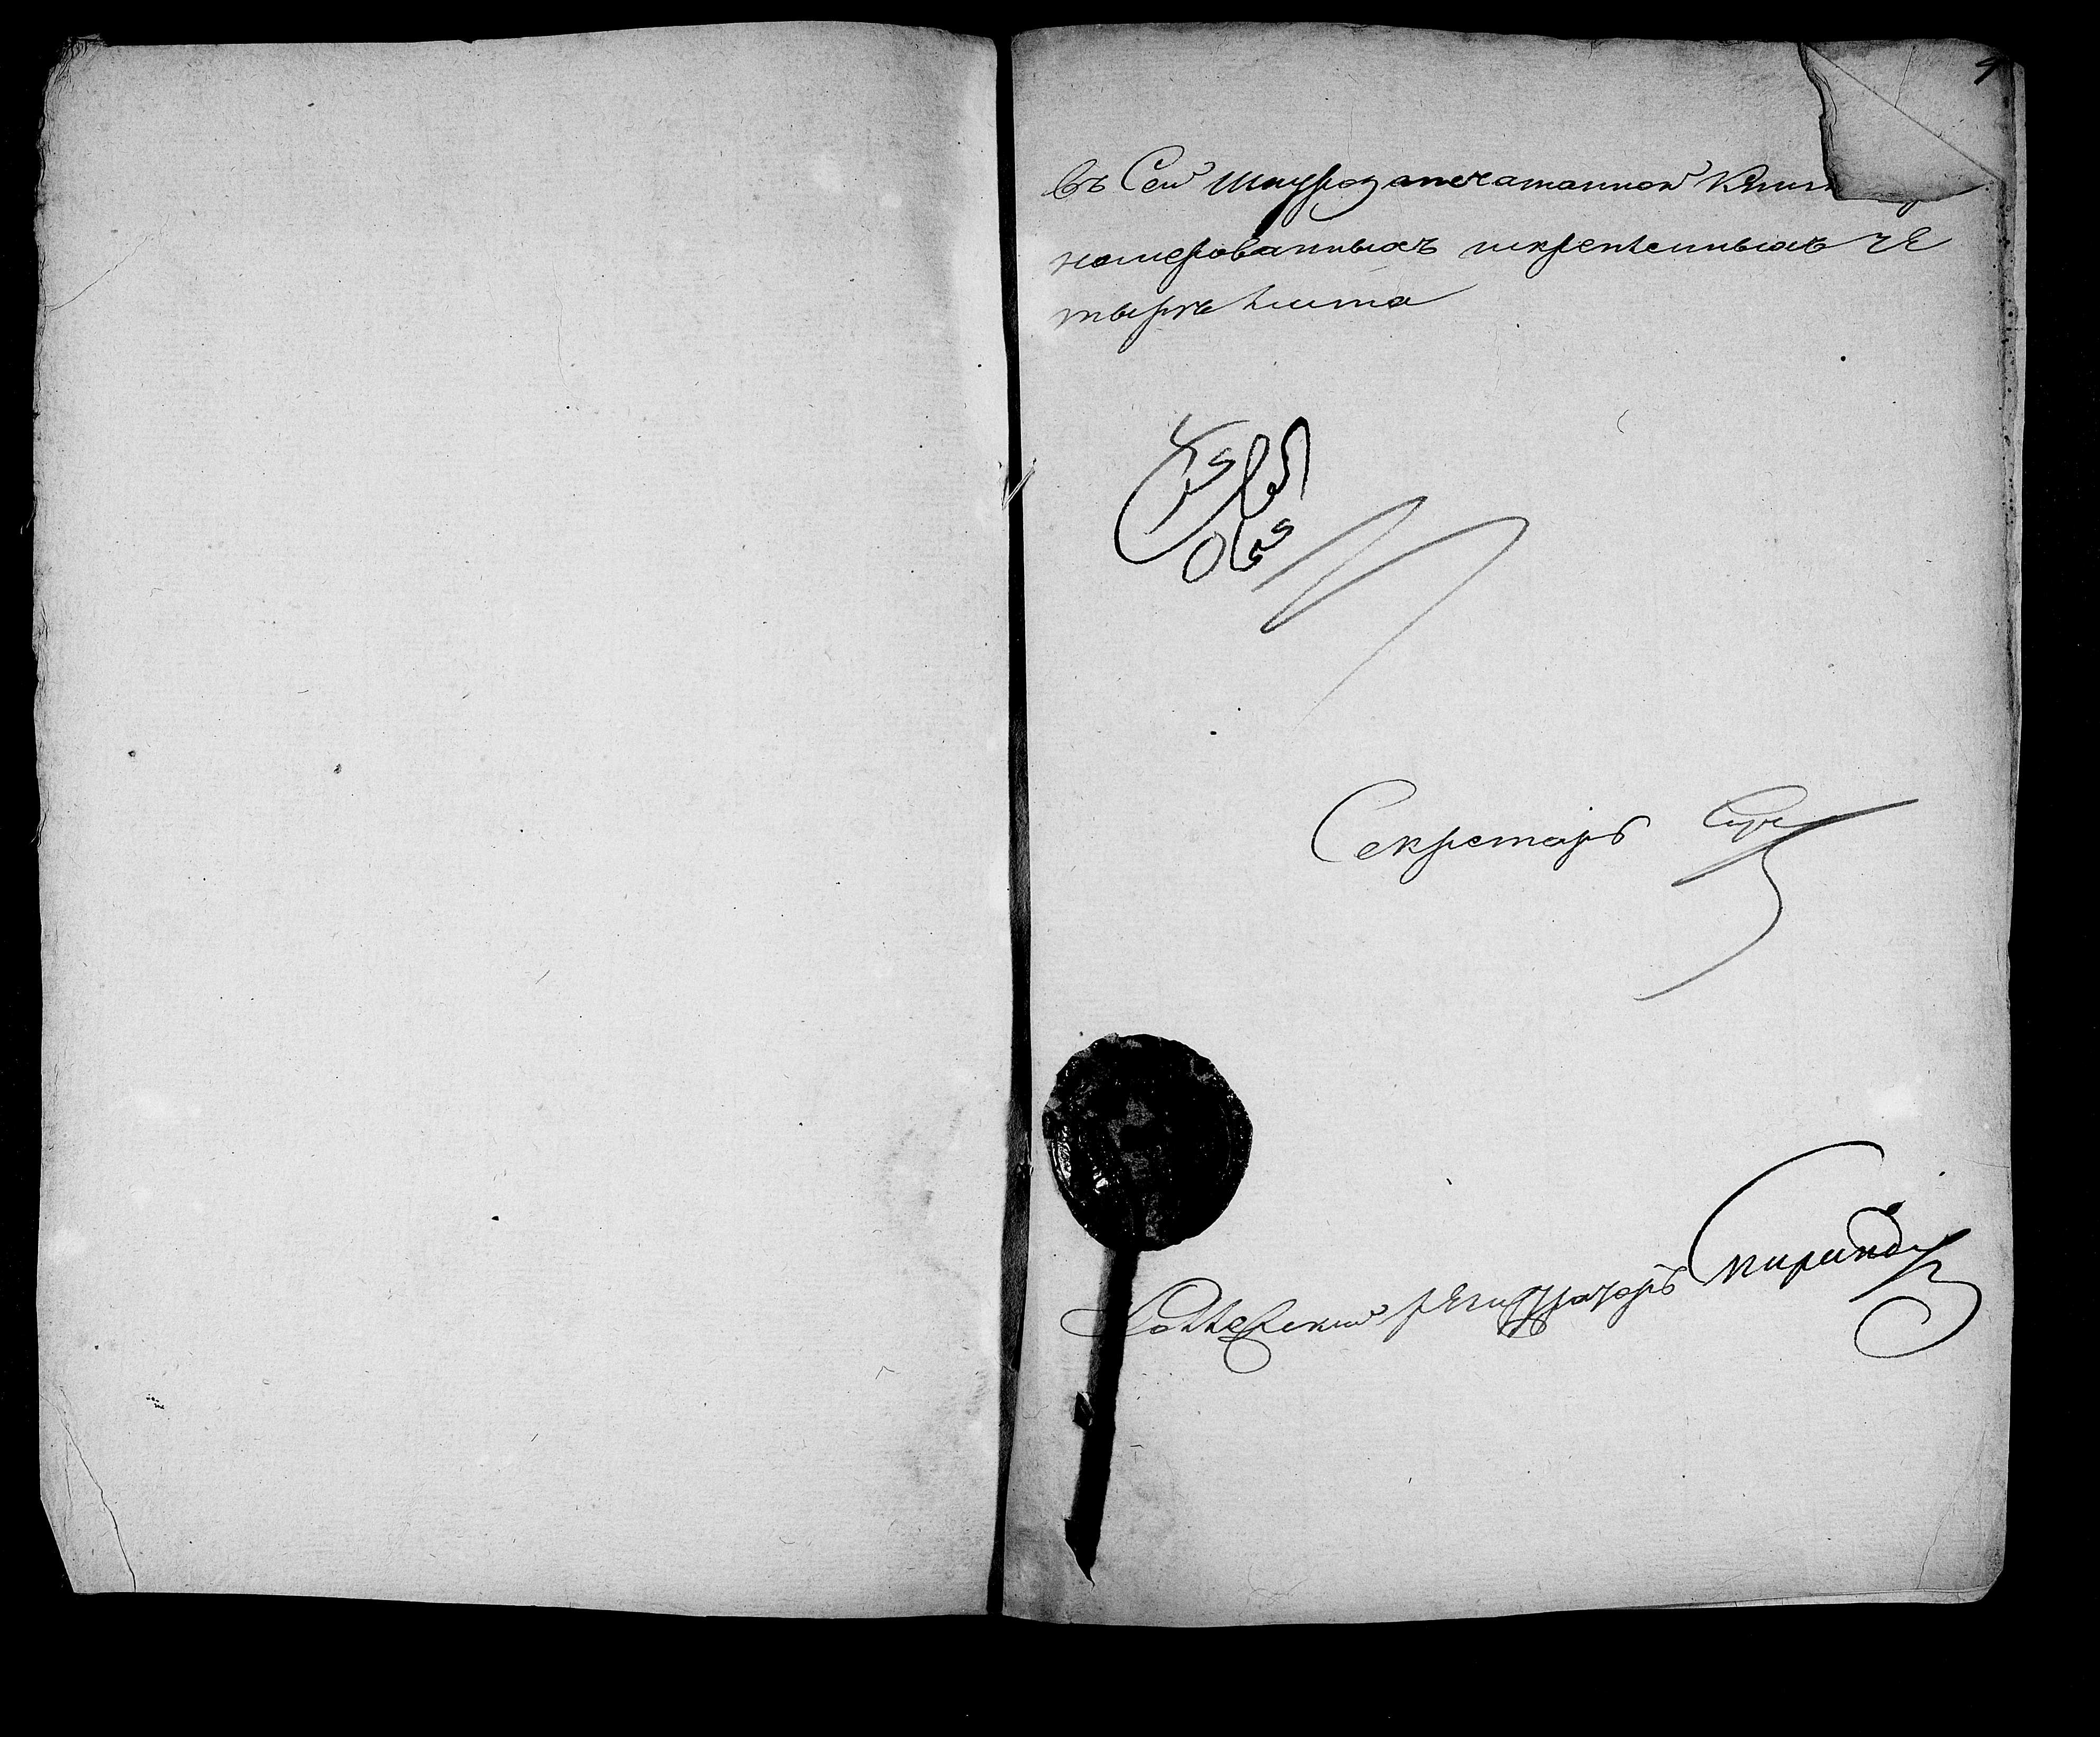 4
Въ Сей шнурозапечатанной Книг
номерованныхъ искрепленныхъ че
тыре листа
Секретарь
Коллежский регистраторъ